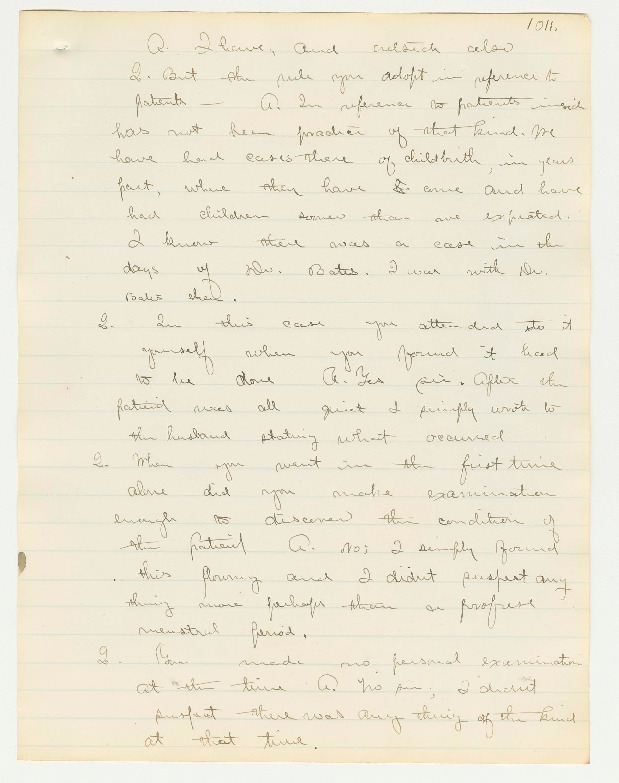 1011.
A. I have, and outside also
Q. But the rule you adopt in reference to
patients — A. In reference to patients inside
has not been practice of that kind. We
have had cases there of childbirth, in years
past, where they have come and have
had children sooner than we expected.
I know there was a case in the
days of Dr. Bates. I was with Dr.
Bates then.
Q. In this case you attended to it
yourself when you found it had
to be done A. Yes sir. After the
patient was all quiet I simply wrote to
the husband stating what occurred
Q. When you went in the first time
alone did you make examination
enough to discover the condition of
the patient A. No; I simply found
this flowing and I didnt suspect any
thing more perhaps than a profuse
menstrul period.
Q. You made no personal examination
at the time A. No sir; I didnt
suspect there was any thing of the kind
at that time.